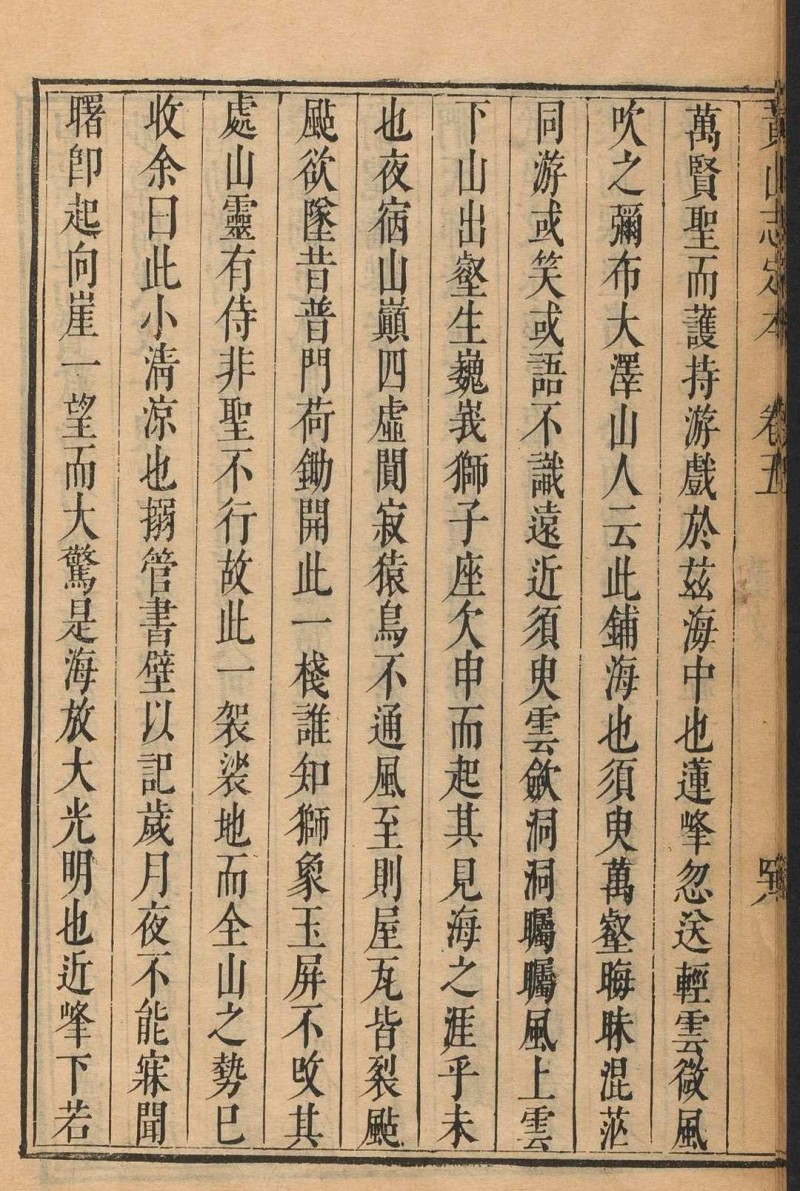 黃山志定本 卷五
萬賢聖而護持游戲於茲海中也蓮峰忽送輕雲微風
吹之彌布大澤山人云此鋪海也須臾萬壑晦昧混茫
同游或笑或語不識遠近須臾雲歛洞洞矚矚風上雲
下山出壑生巍峩獅子座欠申而起其見海之涯乎未
也夜宿山巔四虛閴寂猿鳥不通風至則屋瓦皆裂颭
颭欲墜昔普門荷鋤開此一棧誰知獅象玉屏不改其
處山靈有侍非聖不行故此一袈裟地而全山之勢已
收余曰此小清凉也搦管書壁以記歲月夜不能寐聞
曙卽起向崖一望而大驚是海放大光明也近峰下若